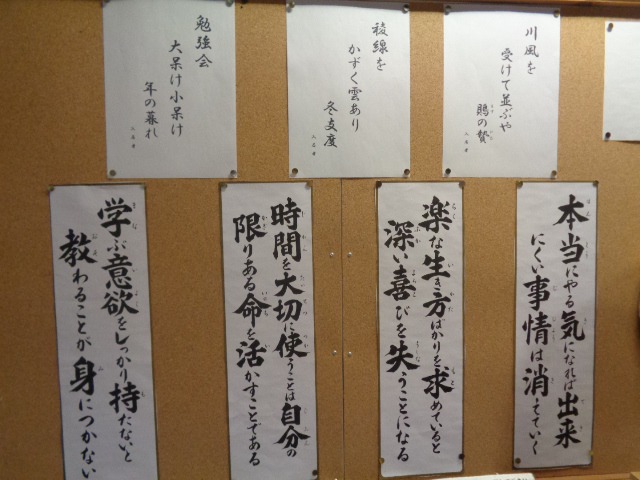 川風を
受けて並ぶや
鵙の贄
稜線を
かずく雲あり
冬支度
勉強会
大呆け小呆け
年の暮れ
本当にやる気になれば出来
にくい事情は消えていく
楽な生き方ばかりを求めていると
深い喜びを失うことになる
時間を大切に使うことは自分の
限りある命を活かすことである
学ぶ意欲をしっかり持たないと
教わることが身につかない